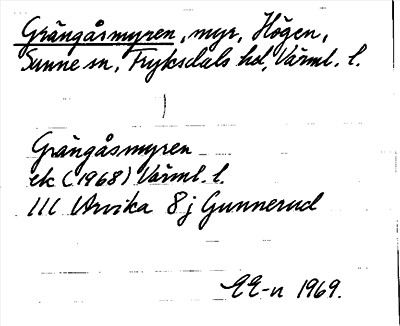 Grängåsmyren, myr, Högen,
Sunne sn, Fryksdals hd, Värml. l.
Grängåsmyren
ek (1968) Värml. l.
111 Arvika 8 j Gunnerud
EE-n 1969.